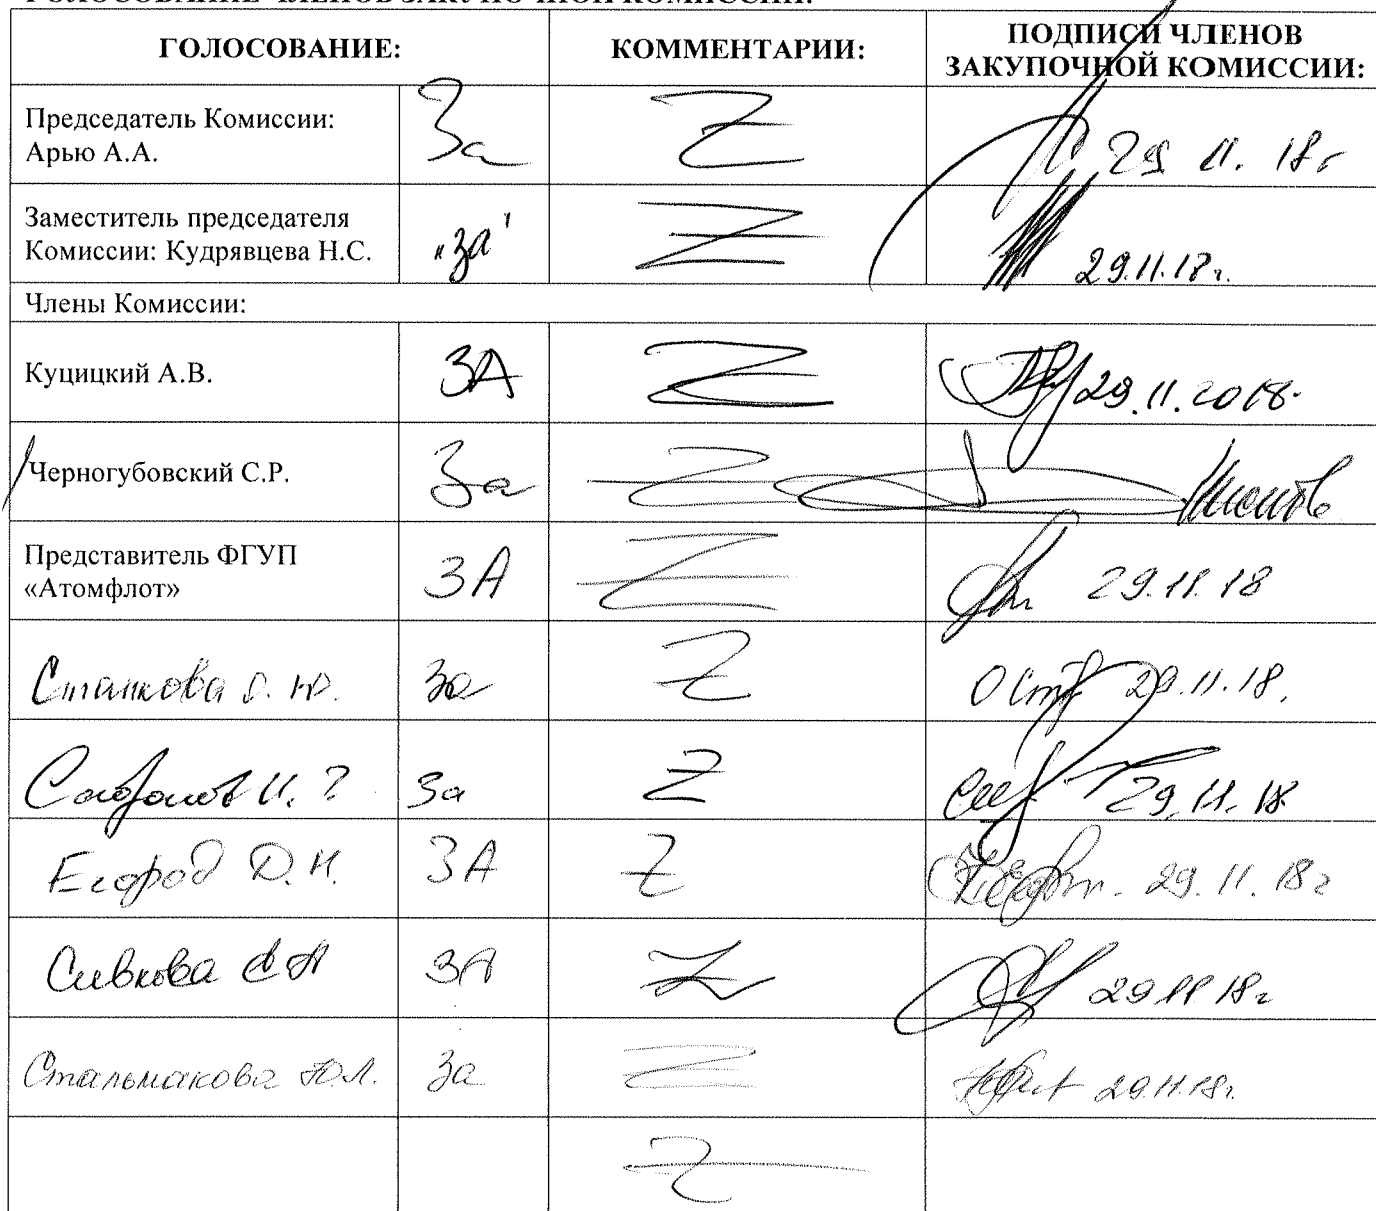 ГОЛОСОВАНИЕ ЧЛЕНОВ ЗАКУПОЧНОЙ КОМИССИИ:
ГОЛОСОВАНИЕ: КОММЕНТАРИИ: ПОДПИСИ ЧЛЕНОВ
ЗАКУПОЧНОЙ КОМИССИИ:
Председатель Комиссии:
Арью А.А. За Z 29 11. 18г
Заместитель председателя
Комиссии: Кудрявцева Н.С. "за" Z 29.11.18г.
Члены Комиссии:
Куцицкий А.В. ЗА Z 29.11.2018.
Черногубовский С.Р. За Z
Представитель ФГУП
«Атомфлот» ЗА Z 29.11.18
Станкова О. Ю. За Z 29.11.18.
И. За Z 29.11.18
Д.Н. ЗА Z 29.11.18г
Сивкова ЗА Z 29 11 18г
Стальмакова Ю.Л. За Z 29.11.18г.
Z